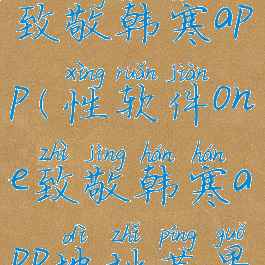 致敬韩寒ap
xìng ruǎn jiàn
p(性软件on
zhì jìng hán hán
e致敬韩寒a
dì zhǐ píng guǒ
pp地址苹果